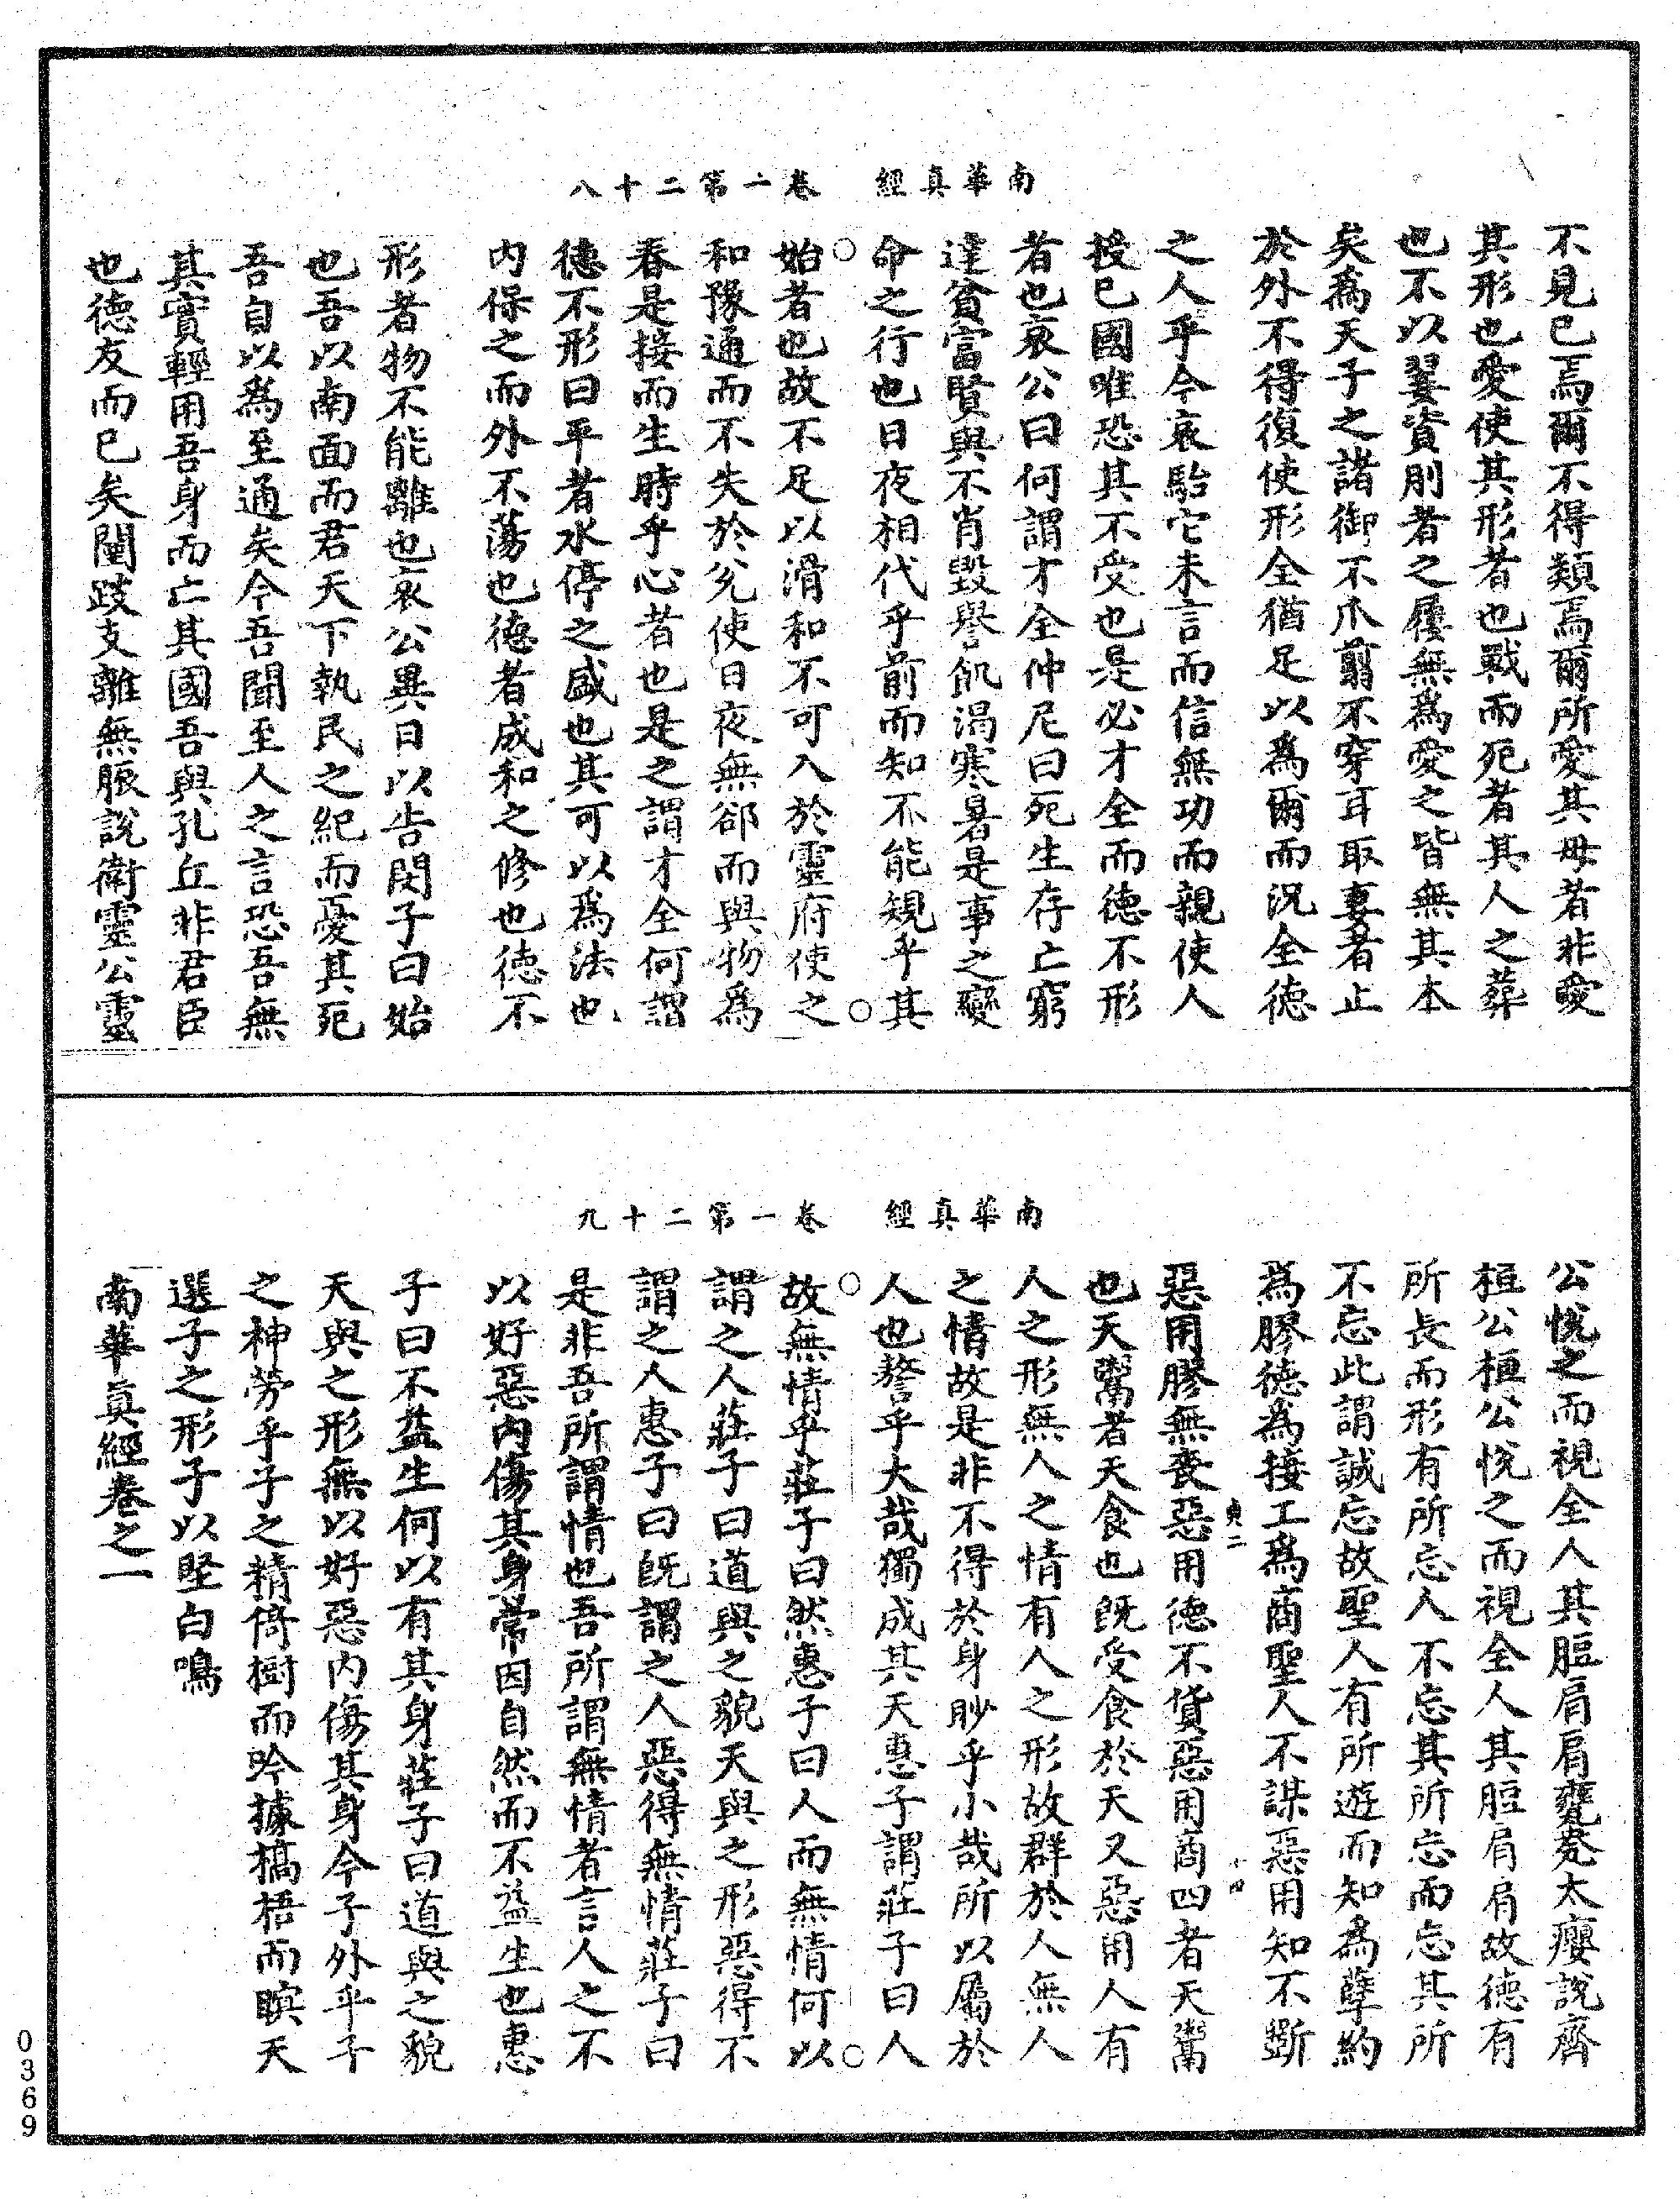 南華真經　卷一第二十八
不見已焉爾不得類焉爾所愛其母者非愛
其形也愛使其形者也戰而死者其人之葬
也不以翣資刖者之屨無為愛之皆無其本
矣為天子之諸御不爪翦不穿耳取妻者止
於外不得復使形全猶足以為爾而況全德
之人乎今哀駘它未言而信無功而親使人
授已國唯恐其不受也是必才全而德不形
者也哀公曰何謂才全仲尼曰死生存亡窮
達貧富賢與不肖毀譽飢渴寒暑是事之變
命之行也日夜相代乎前而知不能規乎其
始者也故不足以滑和不可入於靈府使之
和豫通而不失於兌使日夜無郤而與物為
春是接而生時乎心者也是之謂才全何謂
德不形曰平者水停之盛也其可以為法也
内保之而外不蕩也德者成和之修也德不
形者物不能離也哀公異日以告閔子曰始
也吾以南面而君天下執民之紀而憂其死
吾自以為至通矣今吾聞至人之言恐吾無
其實輕用吾身而亡其國吾與孔丘非君臣
也德友而已矣闉跂支離無脤說衛靈公靈
南華真經　卷一第二十九
公悅之而視全人其脰肩肩甕㼜大癭說齊
桓公桓公悅之而視全人其脰肩肩故德有
所長而形有所忘人不忘其所忘而忘其所
不忘此謂誠忘故聖人有所遊而知為孽約
為膠德為接工為商聖人不謀惡用知不斲
惡用膠無喪惡用德不貨惡用商四者天鬻
也天鬻者天食也旣受食於天又惡用人有
人之形無人之情有人之形故群於人無人
之情故是非不得於身眇乎小哉所以屬於
人也謷乎大哉獨成其天惠子謂莊子曰人
故無情乎莊子曰然惠子曰人而無情何以
謂之人莊子曰道與之貌天與之形惡得不
謂之人惠子曰旣謂之人惡得無情莊子曰
是非吾所謂情也吾所謂無情者言人之不
以好惡内傷其身常因自然而不益生也惠
子曰不益生何以有其身莊子曰道與之貌
天與之形無以好惡内傷其身今子外乎子
之神勞乎子之精倚樹而吟據槁梧而瞑天
選子之形子以堅白鳴
南華真經卷之一
0369